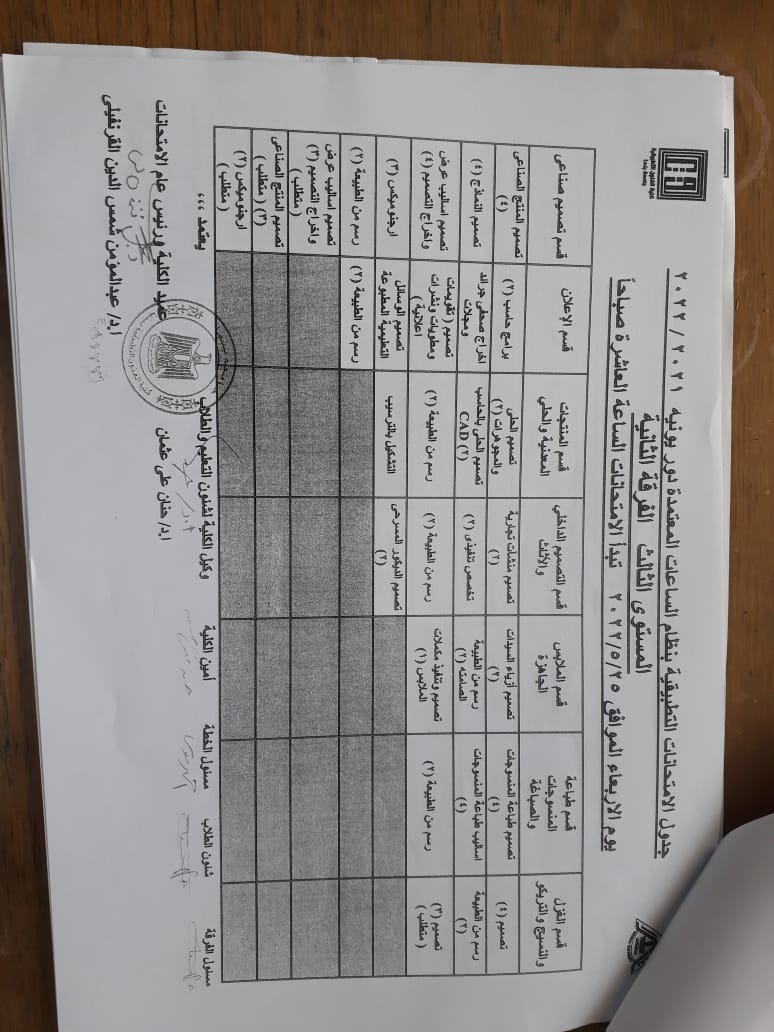 كلية الفنون التطبيقية
جامعة بنها
جدول الامتحانات التطبيقية بنظام الساعات المعتمدة دور يونيه ٢٠٢١ / ٢٠٢٢
المستوى الثالث الفرقة الثانية
يوم الاربعاء الموافق ٢٠٢٢/٥/٢٥ تبدأ الامتحانات الساعة العاشرة صباحاً
قسم تصميم صناعى
قسم الإعلان
قسم المنتجات
المعدنية والحلي
قسم التصميم الداخلي
والأثاث
قسم الملابس
الجاهزة
قسم طباعة
المنسوجات
والصباغة
قسم الغزل
والنسيج والتريكو
تصميم المنتج الصناعى
(٤)
برامج حاسب (٢)
تصميم الحلى
والمجوهرات (٢)
تصميم منشآت تجارية
(٢)
تصميم أزياء السيدات
(٢)
تصميم طباعة المنسوجات
(٤)
تصميم (٤)
تصميم النماذج (٤)
اخراج صحفى جرائد
ومجلات
تصميم الحلى بالحاسب
CAD (٢)
تخصص تنفيذى (٢)
رسم من الطبيعة
الصامته (٢)
اساليب طباعة المنسوجات
(٤)
رسم من الطبيعة
(٢)
تصميم اساليب عرض
واخراج التصميم (٤)
تصميم (تقويمات
ومطويات ونشرات
اعلانية)
رسم من الطبيعة (٢)
رسم من الطبيعة (٢)
تصميم وتنفيذ مكملات
الملابس (١)
رسم من الطبيعة (٢)
تصميم (٣)
(متطلب)
ارجنوميكس (٣)
تصميم الوسائل
التعليمية المطبوعة
التشكيل بالترسيب
تصميم الديكور المسرحى
(٢)
رسم من الطبيعة (٢)
رسم من الطبيعة (٢)
تصميم اساليب عرض
واخراج التصميم (٣)
(متطلب)
تصميم المنتج الصناعى
(٣) (متطلب)
ارجنوميكس (٢)
(متطلب)
مسئول الفرقة
شئون الطلاب
مسئول الخطة
أمين الكلية
وكيل الكلية لشئون التعليم والطلاب
يعتمد ،،،
ا.د/ حنان على عثمان
عميد الكلية ورئيس عام الامتحانات
ا.د/ عبدالمؤمن شمس الدين القرنفيلى